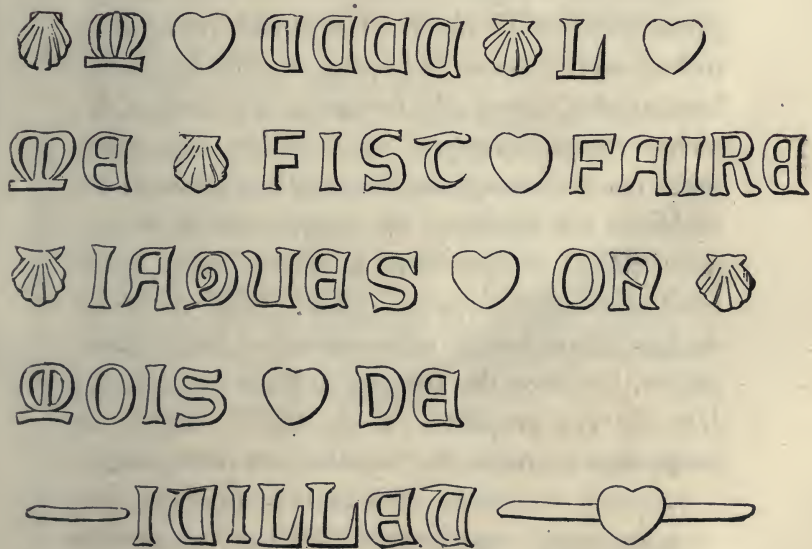 M CCCC L
ME FIST FAIRE
IAQUES ON
MOIS DE
IUILLET